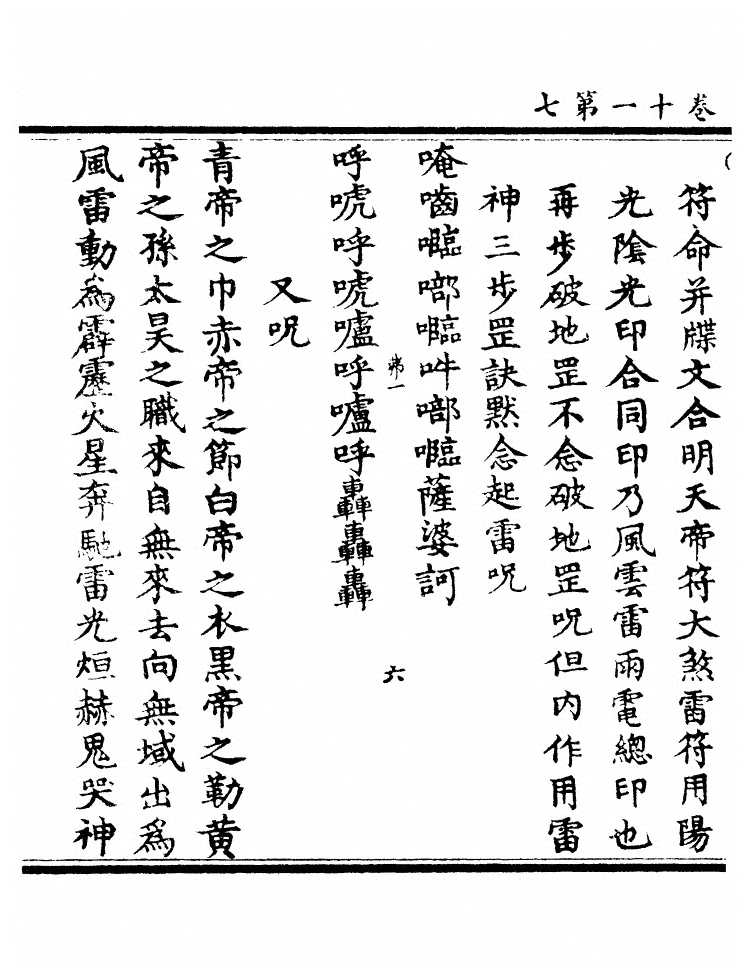 卷十一第七
符命并牒文合明天帝符大煞雷符用陽
光陰光印合同印乃風雲雷雨電總印也
再步破地罡不念破地罡呪但内作用雷
神三步罡訣默念起雷呪
唵嚙𡅏㗉𡅏吽㗉𡅏薩婆訶
第一
六
呼唬呼唬嚧呼嚧呼轟轟轟
又呪
青帝之巾赤帝之節白帝之衣黒帝之勒黄
帝之孫太昊之職來自無來去向無域出為
風雷動為霹靂火星奔馳雷光烜赫鬼哭神